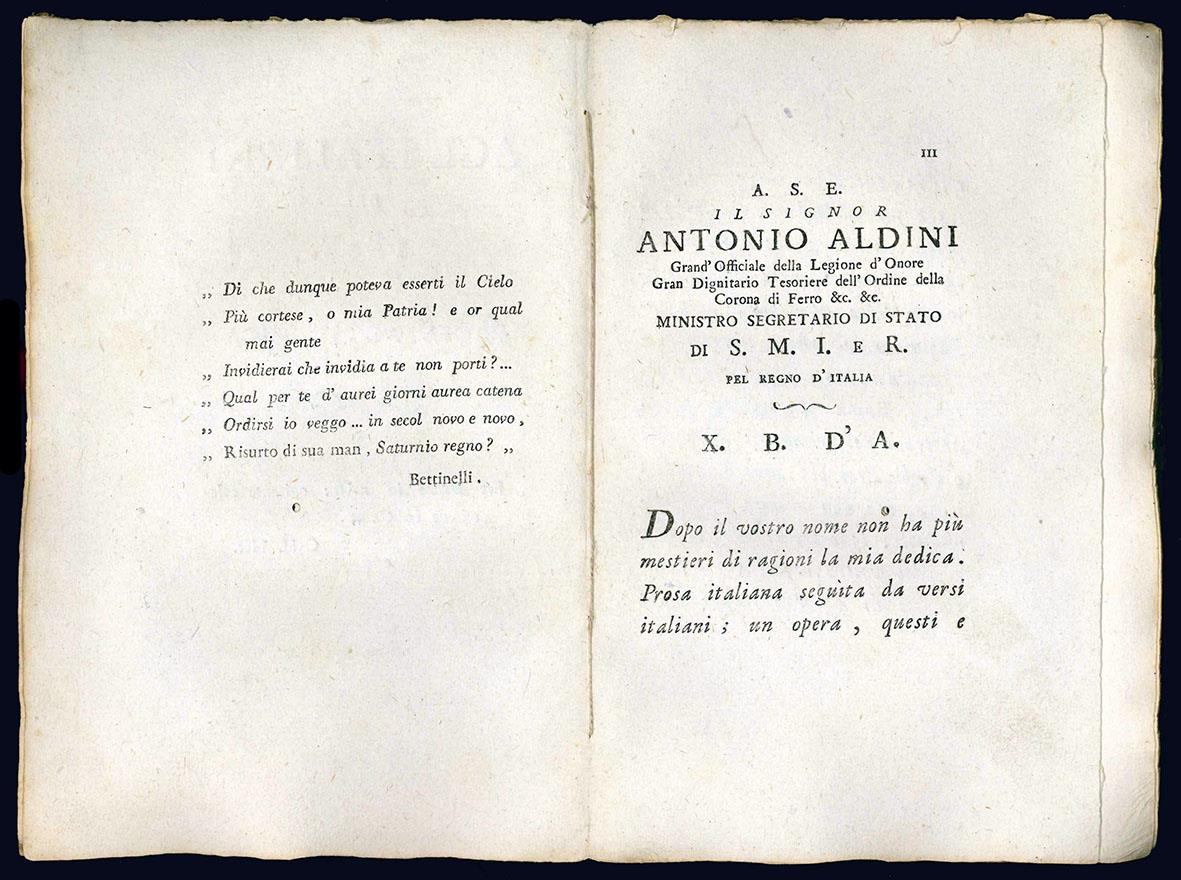 „ Di che dunque poteva esserti il Cielo
„ Più cortese, o mia Patria! e or qual
mai gente
„ Invidierai che invidia a te non porti?...
„ Qual per te d' aurei giorni aurea catena
„ Ordirsi io veggo ... in secol novo e novo,
„ Risurto di sua man, Saturnio regno? „
Bettinelli.
III
A. S. E.
IL SIGNOR
ANTONIO ALDINI
Grand' Officiale della Legione d' Onore
Gran Dignitario Tesoriere dell' Ordine della
Corona di Ferro &c. &c.
MINISTRO SEGRETARIO DI STATO
DI S. M. I. E R.
PEL REGNO D' ITALIA
X. B. D' A.
Dopo il vostro nome non ha più
mestieri di ragioni la mia dedica.
Prosa italiana seguìta da versi
italiani; un opera, questi e